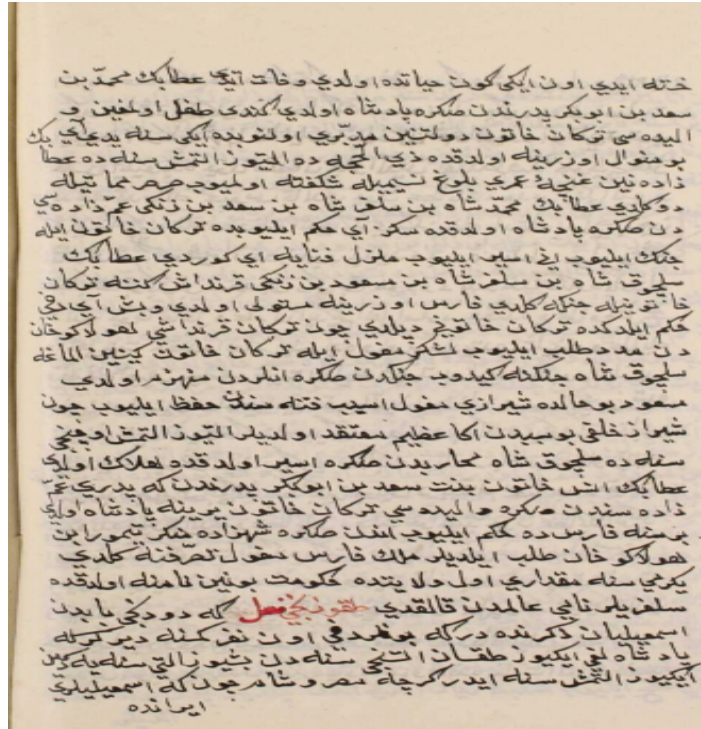 خته ايدي اون ايكي كون حياتده اولدي وفات ايتدي عطابك محمّد بن
سعد بن ابو بكر پدرندن صكره پادشاه اولدي كندى طفل اولمغين و
اليده سى تركان خاتون دولتنين مدبّري اولنوبده ايكى سنه يدي آي بك
بو منوال اوزرينه اولدقده ذي الحجّه ده التيوز التمش سنه ده عطا
زاده نين غنچهٔ عمري بلوغ نسيميله شكفته اولميوب صرصر مماتيله
دوكلدي عطابك محمّد شاه بن سلغر شاه بن سعد بن زنكى عمّ زاده سي
دن صكره پادشاه اولدقده سكز آي حكم ايليوبده تركان خاتون ايله
جنك ايليوب انى اسير ايليوب منزل فنايه اي كوردي عطابك
سلجوق شاه بن سلغر شاه بن مسعود بن زنكى قرنداش كنه تركان
خاتونيله جنكه كلدي فارس اوزرينه مستولى اولدي وبش آي دخي
حكم ايلدكده تركان خاتونى ديلدي چون تركان قرنداشي لهولاكو خان
دن مدد طلب ايليوب لشكر مغول ايله تركان خاتون كينين الماغه
سلجوق شاه جنكنه كيدوب جنكدن صكره انلردن منهزم اولدي
مسعود بو حالده شيرازي مغول اسيب فتنه سندن حفظ ايليوب چون
شيراز خلقى بو سبيدن اكا عظيم معتقد اولديلر التيوز التمش اوچنجي
سنه ده سلجوق شاه محاربدن صكره اسير اولدقده هلاك اولدي
عطابك انش خاتون بنت سعد بن ابو بكر پدرندن كه پدري عمّ
زاده سندن صكره واليده سي تركان خاتون يرينه پادشاه اولدي
بر سنه فارس ده حكم ايليوب اندن صكره شهزاده منكو تيمور ابن
لهولاكو خان طلب ايلديلر ملك فارس مغول تصرّفنه كلدي
يكرمي سنه مقداري اول ولايتده حكومت بونين نامنه اولدقده
سلغريلر نامي عالمدن قالقدي طقوزنجي فصل كه دودنجي بابدن
اسمعيليان ذكرنده در كه بونلر دخي اون نفر كسنه دير لركه
پادشاه لغى ايكيوز طقسان التنجى سنه دن بشيوز التي سنه يه دكين
ايكيوز التمش سنه ايدر كرچه مصر و شام چون كه اسمعيليلري
ايرانده